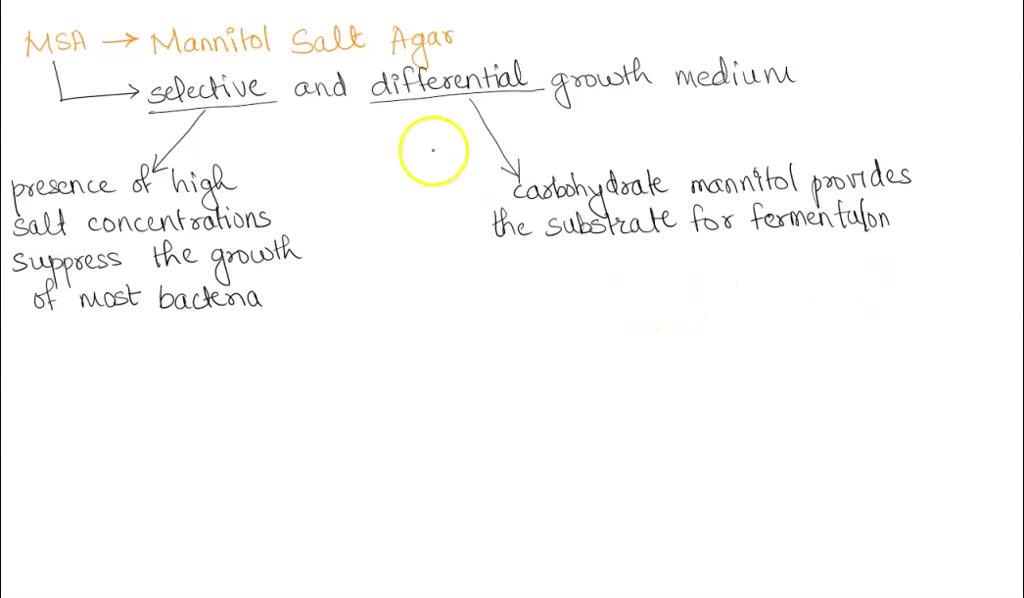 MSA → Mannitol Salt Agar
→ selective and differential growth medium
presence of high
salt concentrations
suppress the growth
of most bacteria
carbohydrate mannitol provides
the substrate for fermentation